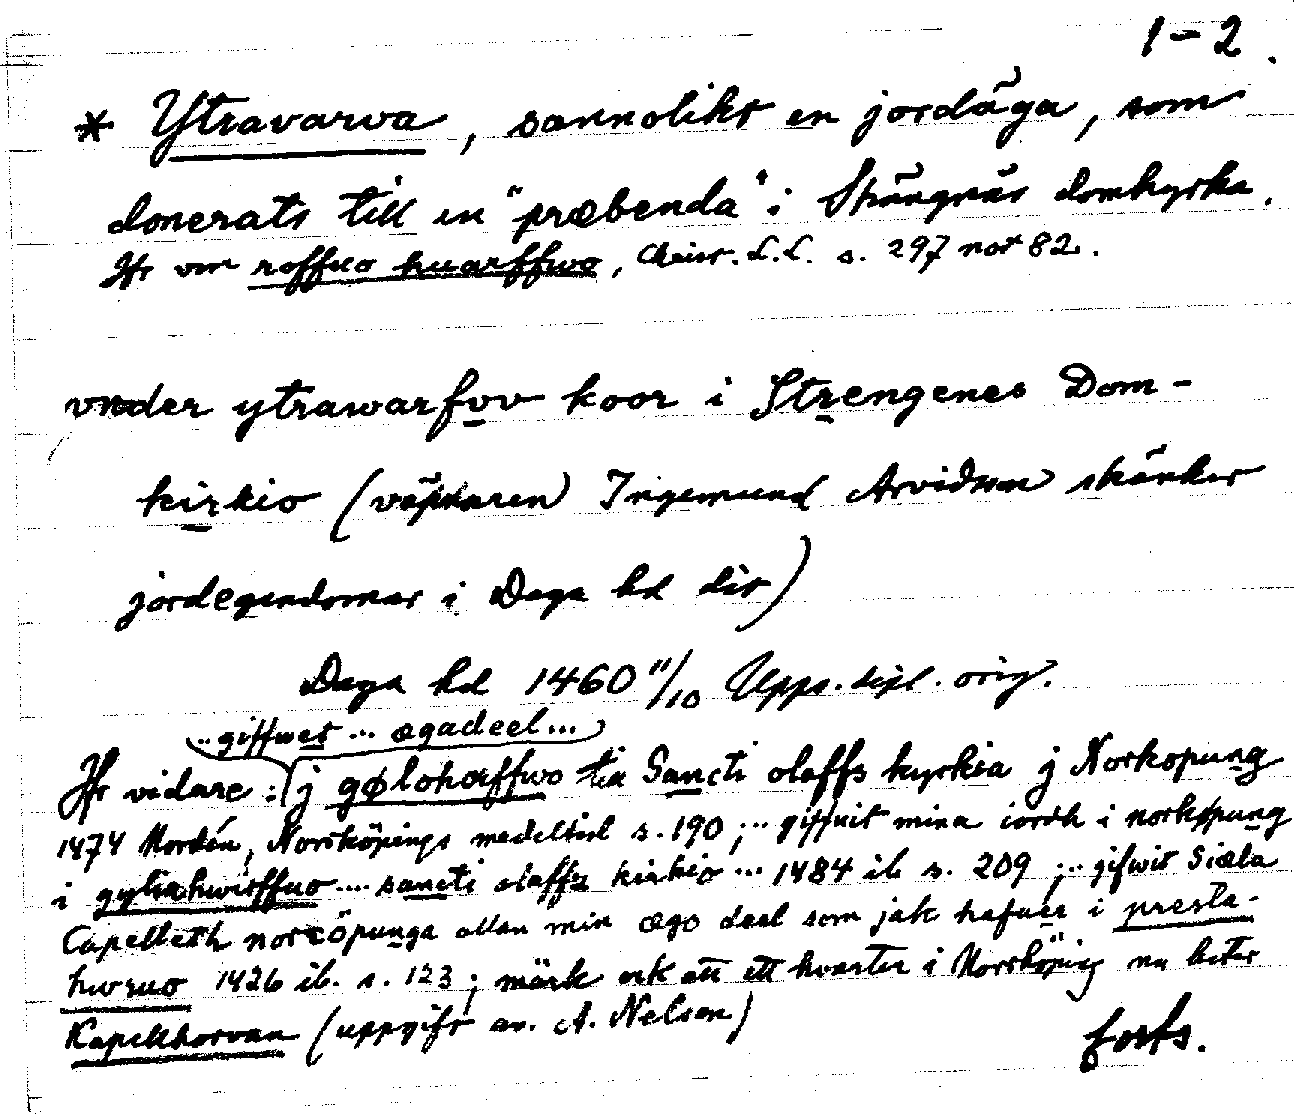 1-2.
* Ytravarva, sannolikt en jordäga, som
donerats till en "præbenda" i Strängnäs domkyrka.
Jfr om roffuo huarffwo, Christ. L.L. s. 297 not 82.
vnder ytrawarfvv koor i Strengenes Dom-
kirkio (väpnaren Ingemund Arvidsson skänker
jordegendomar i Daga hd dit)
Daga hd 1460 11/10 Upps. dipl. orig.
..giffwet ... ægadeel...
Jfr vidare: j gølohærffwo til Sancti olaffs kyrkia j Norkopung
1474 Nordén, Norrköpings medeltid s. 190; .. giffuit mina iordh i norkøpung
i gytiæhwrffuo .... sancti olaffz kirkio ... 1484 ib s. 209; .. gifwit Siæla
Capelleth norcöpunga allan min ægo deel som jak hafuer i presta-
hvruo 1426 ib. s. 123; märk ock att ett kvarter i Norrköping nu heter
Kapellhorvan (uppgift av. A. Nelson)
forts.